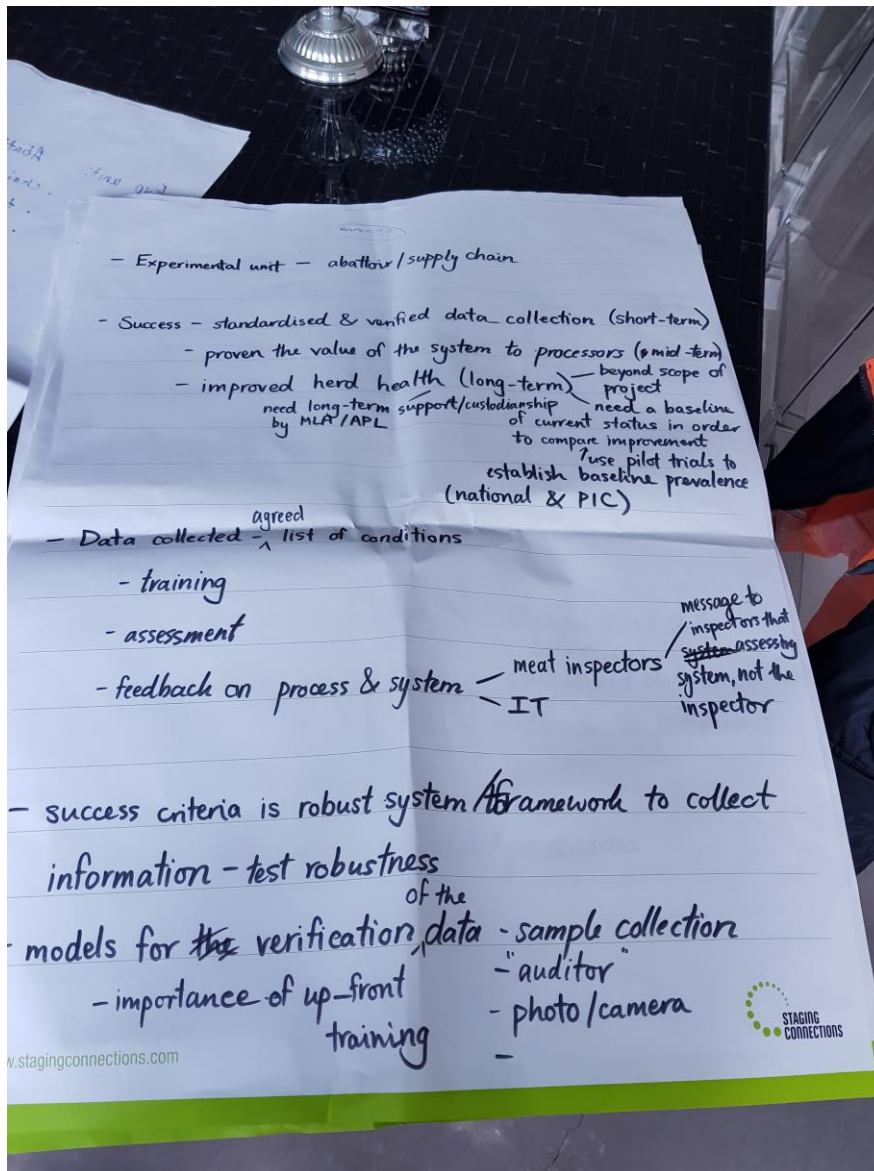 - Experimental unit - abattoir/supply chain
- Success - standardised & verified data collection (short-term)
- proven the value of the system to processors (mid-term)
- improved herd health (long-term)
beyond scope of
project
need long-term support/custodianship
by MLA/APL
need a baseline
of current status in order
to compare improvement
use pilot trials to
establish baseline prevalence
(national & PIC)
- Data collected - agreed list of conditions
- training
- assessment
- feedback on process & system
meat inspectors
IT
message to
inspectors that
assessing
system, not the
inspector
- success criteria is robust system/framework to collect
information - test robustness
- models for verification of the data
- importance of up-front
training
- sample collection
- "auditor"
- photo/camera
-
STAGING
CONNECTIONS
w.stagingconnections.com